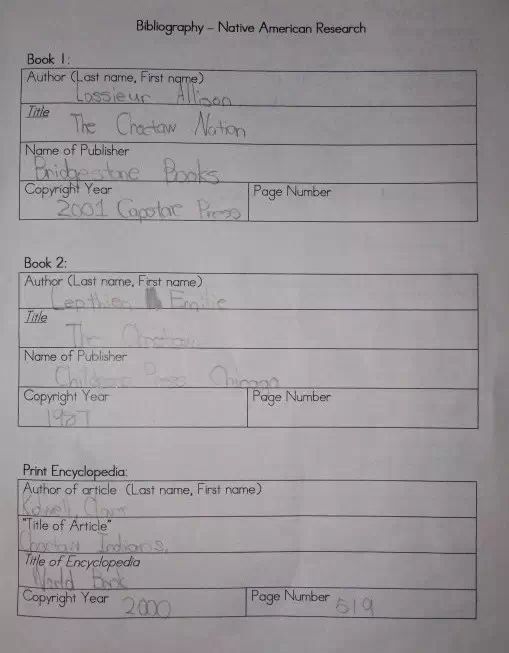 Bibliography – Native American Research
Book 1:
Author (Last name, First name)
Lassieur Allison
Title
The Choctaw Nation
Name of Publisher
Bridgestone Books
Copyright Year
Page Number
2001 Capstone Press
Book 2:
Author (Last name, First name)
Lepthien Emilie
Title
The Choctaw
Name of Publisher
Childrens Press Chicago
Copyright Year
Page Number
1987
Print Encyclopedia:
Author of article (Last name, First name)
"Title of Article"
Choctaw Indians.
Title of Encyclopedia
World Book
Copyright Year 2000
Page Number 519